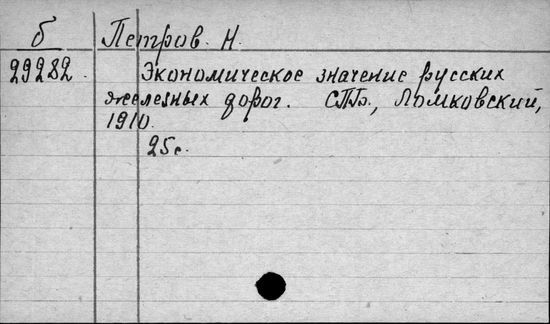 б Петров. Н.
29282. Экономическое значение русских
железных дорог. СПб., Ломковский,
1910.
25с.